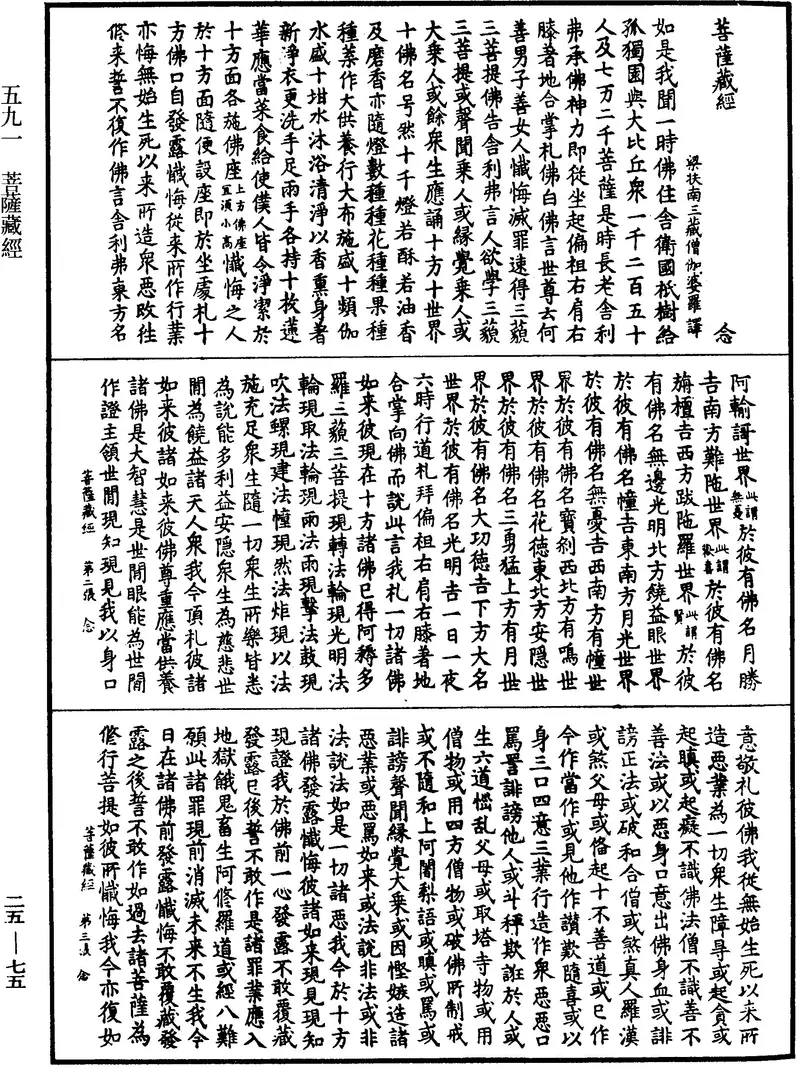 菩薩藏經 念
梁扶南三藏僧伽婆羅譯
如是我聞一時佛住舍衛國祇樹給
孤獨園與大比丘衆一千二百五十
人及七万二千菩薩是時長老舍利
弗承佛神力即從坐起偏袒右肩右
膝著地合掌礼佛白佛言世尊云何
善男子善女人懺悔滅罪速得三藐
三菩提佛告舍利弗言人欲學三藐
三菩提或聲聞乘人或緣覺乘人或
大乘人或餘衆生應誦十方十世界
十佛名号然十千燈若酥若油香
及磨香亦隨燈數種種花種種果種
種菜作大供養行大布施盛十類伽
水盛十坩水沐浴清淨以香熏身著
新淨衣更洗手足兩手各持十枚蓮
華應當菜食給使僕人皆令淨潔於
十方面各施佛座上方佛座宜須小高懺悔之人
於十方面隨便設座即於坐處礼十
方佛口自發露懺悔從来所作行業
亦悔無始生死以来所造衆惡改往
修来誓不復作佛言舍利弗東方名
阿輸謌世界此謂無憂於彼有佛名月勝
吉南方難陁世界此謂歡喜於彼有佛名
栴檀吉西方跋陁羅世界此謂賢於彼
有佛名無邊光明北方饒益眼世界
於彼有佛名幢吉東南方月光世界
於彼有佛名無憂吉西南方有幢世
界於彼有佛名寶刹西北方有鳴世
界於彼有佛名花德東北方安隱世
界於彼有佛名三勇猛上方有月世
界於彼有佛名大功德吉下方大名
世界於彼有佛名光明吉一日一夜
六時行道礼拜偏袒右肩右膝著地
合掌向佛而說此言我礼一切諸佛
如来彼現在十方諸佛已得阿耨多
羅三藐三菩提現轉法輪現光明法
輪現取法輪現雨法雨現擊法鼓現
吹法螺現建法幢現然法炬現以法
施充足衆生隨一切衆生所樂皆悉
為說能多利益安隱衆生為慈悲世
間為饒益諸天人衆我今頂礼彼諸
如来彼諸如来彼佛尊重應當供養
諸佛是大智慧是世間眼能為世間
作證主領世間現知現見我以身口
菩薩藏經 第二張 念
意敬礼彼佛我從無始生死以来所
造惡業為一切衆生障㝵或起貪或
起瞋或起癡不識佛法僧不識善不
善法或以惡身口意出佛身血或誹
謗正法或破和合僧或煞真人羅漢
或煞父母或俻起十不善道或已作
今作當作或見他作讃歎隨喜或以
身三口四意三業行造作衆惡惡口
罵詈誹謗他人或斗秤欺誑於人或
生六道惱乱父母或取塔寺物或用
僧物或用四方僧物或破佛所制戒
或不隨和上阿闍梨語或瞋或罵或
誹謗聲聞緣覺大乘或因慳嫉造諸
惡業或惡罵如来或法說非法或非
法說法如是一切諸惡我今於十方
諸佛發露懺悔彼諸如来現見現知
現證我於佛前一心發露不敢覆藏
發露已後誓不敢作是諸罪業應入
地獄餓鬼畜生阿修羅道或經八難
願此諸罪現前消滅未来不生我今
日在諸佛前發露懺悔不敢覆藏發
露之後誓不敢作如過去諸菩薩為
修行菩提如彼所懺悔我今亦復如
菩薩藏經 第三張 念
五九一 菩薩藏經
二五—七五